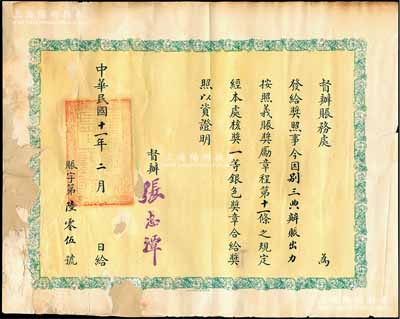 督辦賑務處 為
發給獎照事今因別三典辦賑出力
按照義賑獎勵章程第十一條之規定
經本處核獎一等銀色獎章合給獎
照以資證明
督辦 張志潭
中華民國十一年二月 日給
賑字第陸零伍號